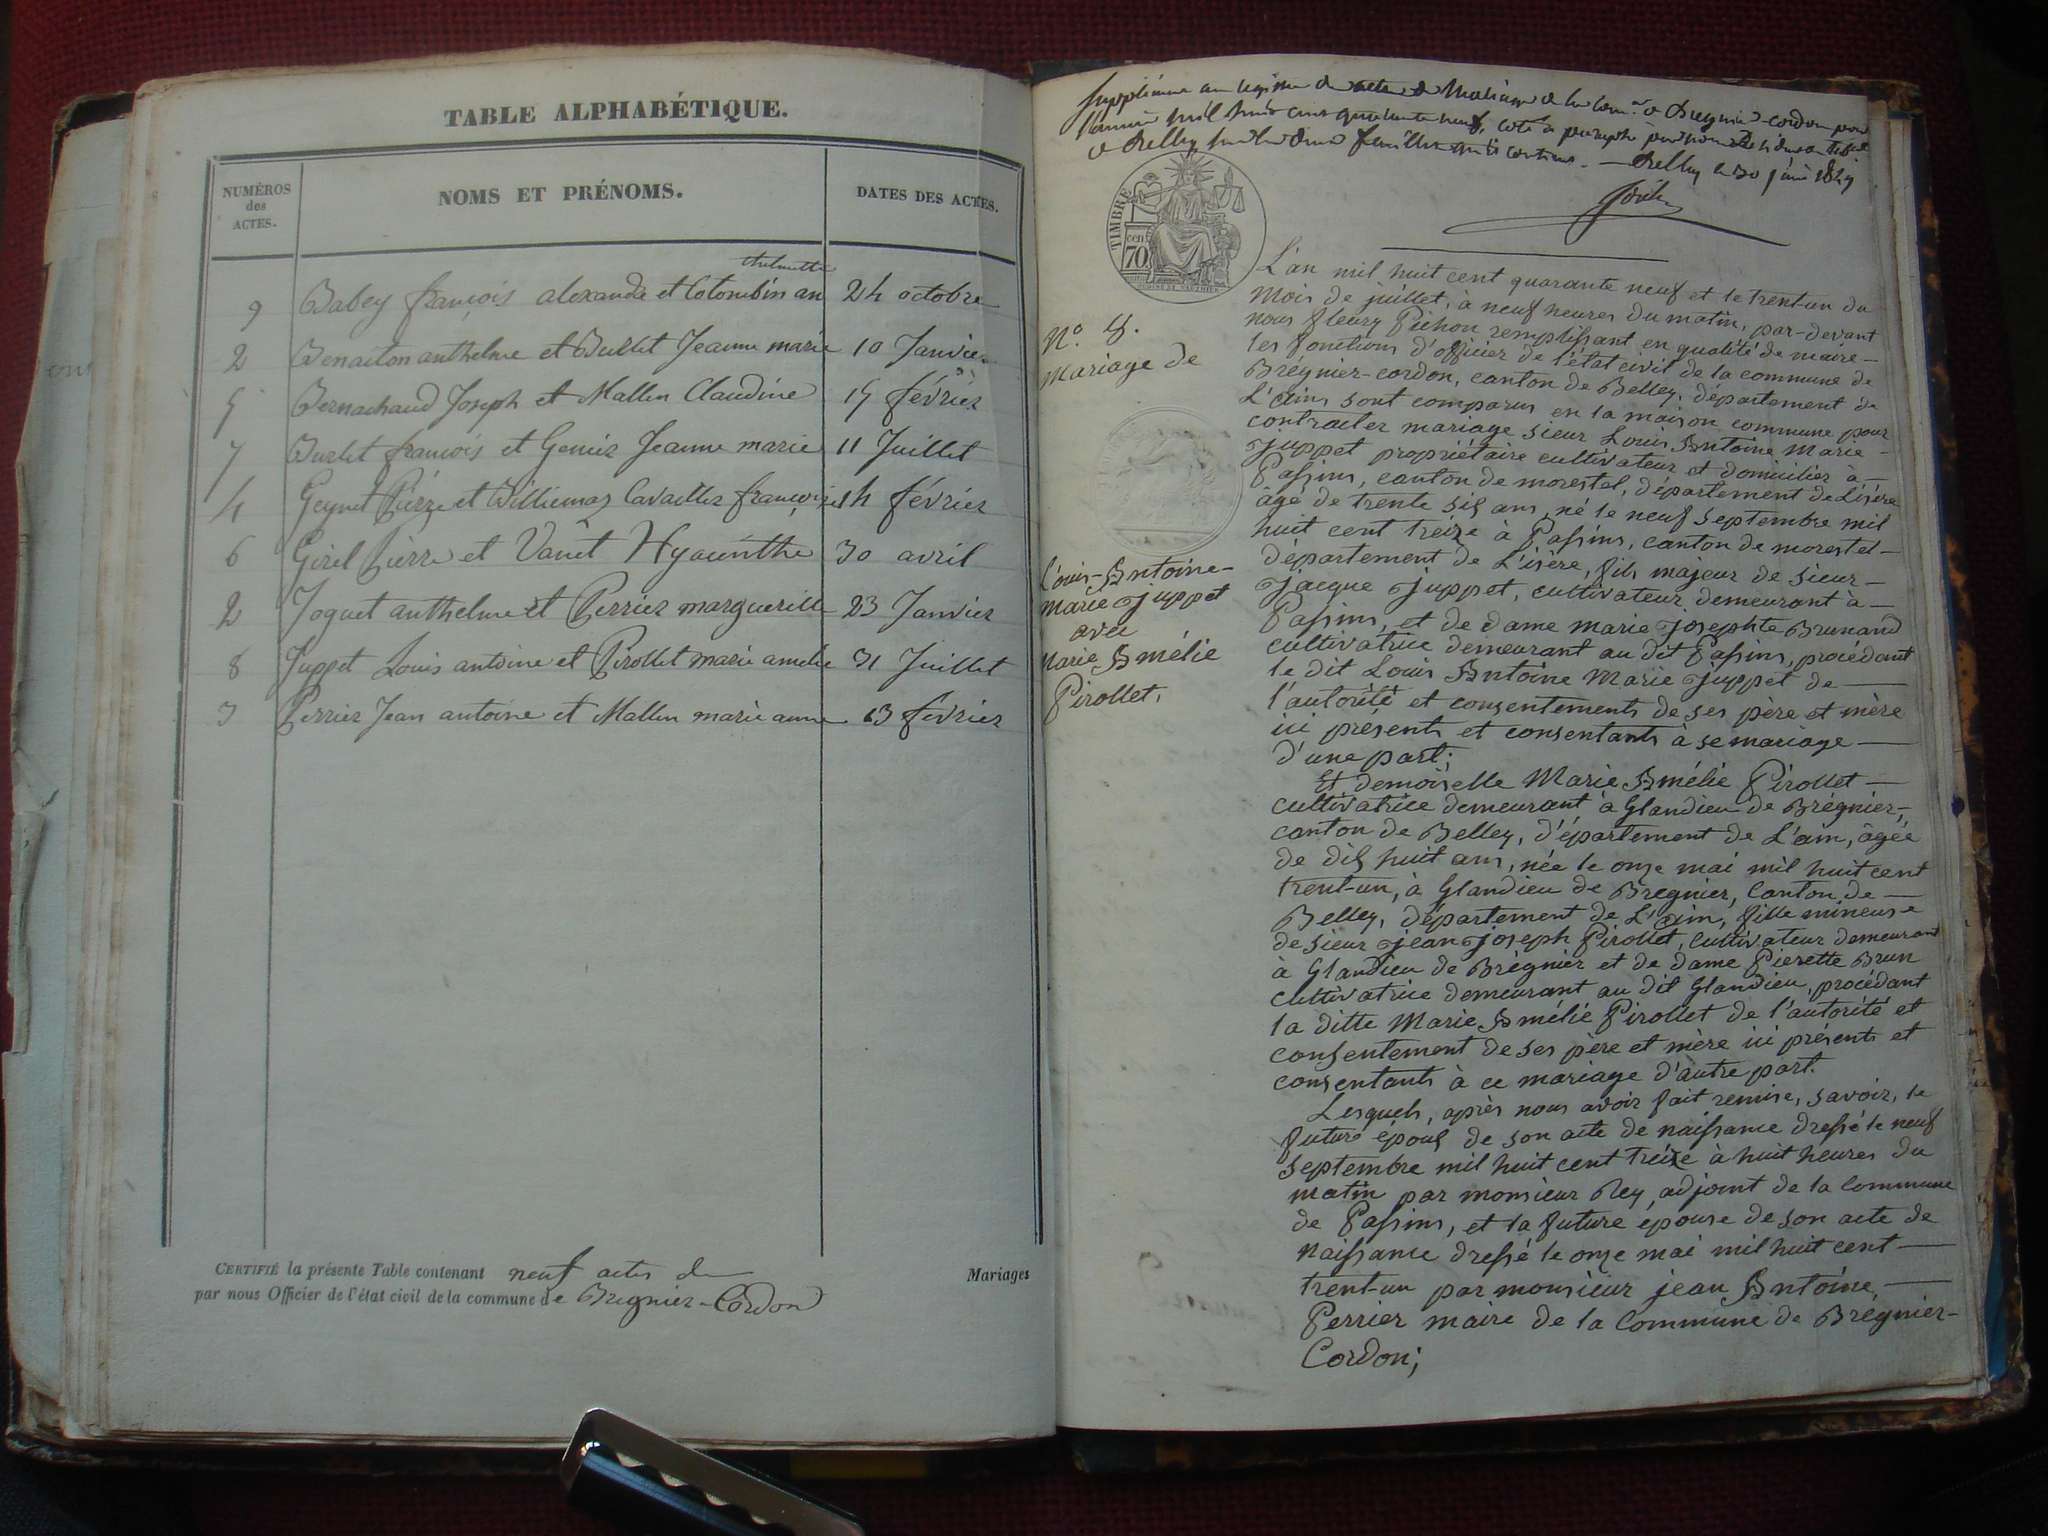 TABLE ALPHABÉTIQUE.
NUMÉROS
des
ACTES.
NOMS ET PRÉNOMS.
DATES DES ACTES.
9 Babey françois alexandre et Colombin anthelmette 24 octobre
2 Benaiton anthelme et Bullet Jeanne marie 10 Janvier
5 Bernachaud Joseph et Mallen Claudine 15 février
7 Burlet françois et Genin Jeanne marie 11 Juillet
4 Geynet Pierre et Williermoz Cavaillez françoise 14 février
6 Girel Pierre et Vanet Hyacinthe 30 avril
2 Joguet anthelme et Perrier marguerite 23 Janvier
8 Juppet Louis antoine et Pirollet marie amelie 31 Juillet
3 Perrier Jean antoine et Mallen marie anne 13 fevrier
CERTIFIÉ la présente Table contenant neuf actes de Mariages
par nous Officier de l'état civil de la commune de Bregnier-Cordon
Supplément au registre de mariage de la Com.e de Bregnier-cordon pour
l'année mil huit cent quarante neuf, coté et paraphé par nous
de Belley Belley le 30 juin 1849
TIMBRE
70
cen
No. 8.
Mariage de
Louis-Antoine-
Marie Juppet
avec
Marie Amélie
Pirollet.
L'an mil huit cent quarante neuf et le trent-un du
mois de juillet, à neuf heures du matin, par-devant
nous fleury Pichon remplissant en qualité de maire-
les fonctions d'officier de l'état civil de la commune de
Brégnier-cordon, canton de Belley, département de
L'Ain, sont comparus en la maison commune pour
contracter mariage sieur Louis Antoine Marie-
Juppet propriétaire cultivateur et domicilier à-
Passins, canton de morestel, département de L'isère
âgé de trente six ans, né le neuf septembre mil
huit cent treize à Passins, canton de morestel-
département de L'isère, fils majeur de sieur-
Jacque Juppet, cultivateur demeurant à-
Passins, et de dame marie Josephte Brunand
cultivatrice demeurant au dit Passins, procédant
le dit Louis Antoine Marie Juppet de
l'autorité et consentements de ses père et mère
ici présents et consentants à se mariage
d'une part;
Et demoiselle Marie Amélie Pirollet
cultivatrice demeurant à Glandieu de Brégnier-,
canton de Belley, d'épartement de L'ain, âgée
de dix huit ans, née le onze mai mil huit cent
trent-un, à Glandieu de Bregnier, Canton de-
Belley, département de L'Ain, fille mineuse
de sieur Jean Joseph Pirollet, cultivateur demeurant
à Glandieu de Brégnier et de dame Pierette Brun
cultivatrice demeurant au dit Glandieu, procédant
la ditte Marie Amélie Pirollet de l'autorité et
consentement de ses père et mère ici présents et
consentants à ce mariage d'autre part.
Lesquels, après nous avoir fait remise, savoir, le
futuré époux de son acte de naissance dressé le neuf
septembre mil huit cent treize à huit heures du
matin par monsieur Rey, adjoint de la commune
de Passins, et la future épouse de son acte de
naissance dressé le onze mai mil huit cent
trent-un par monsieur jean Antoine
Perrier maire de la commune de Brégnier-
Cordon;